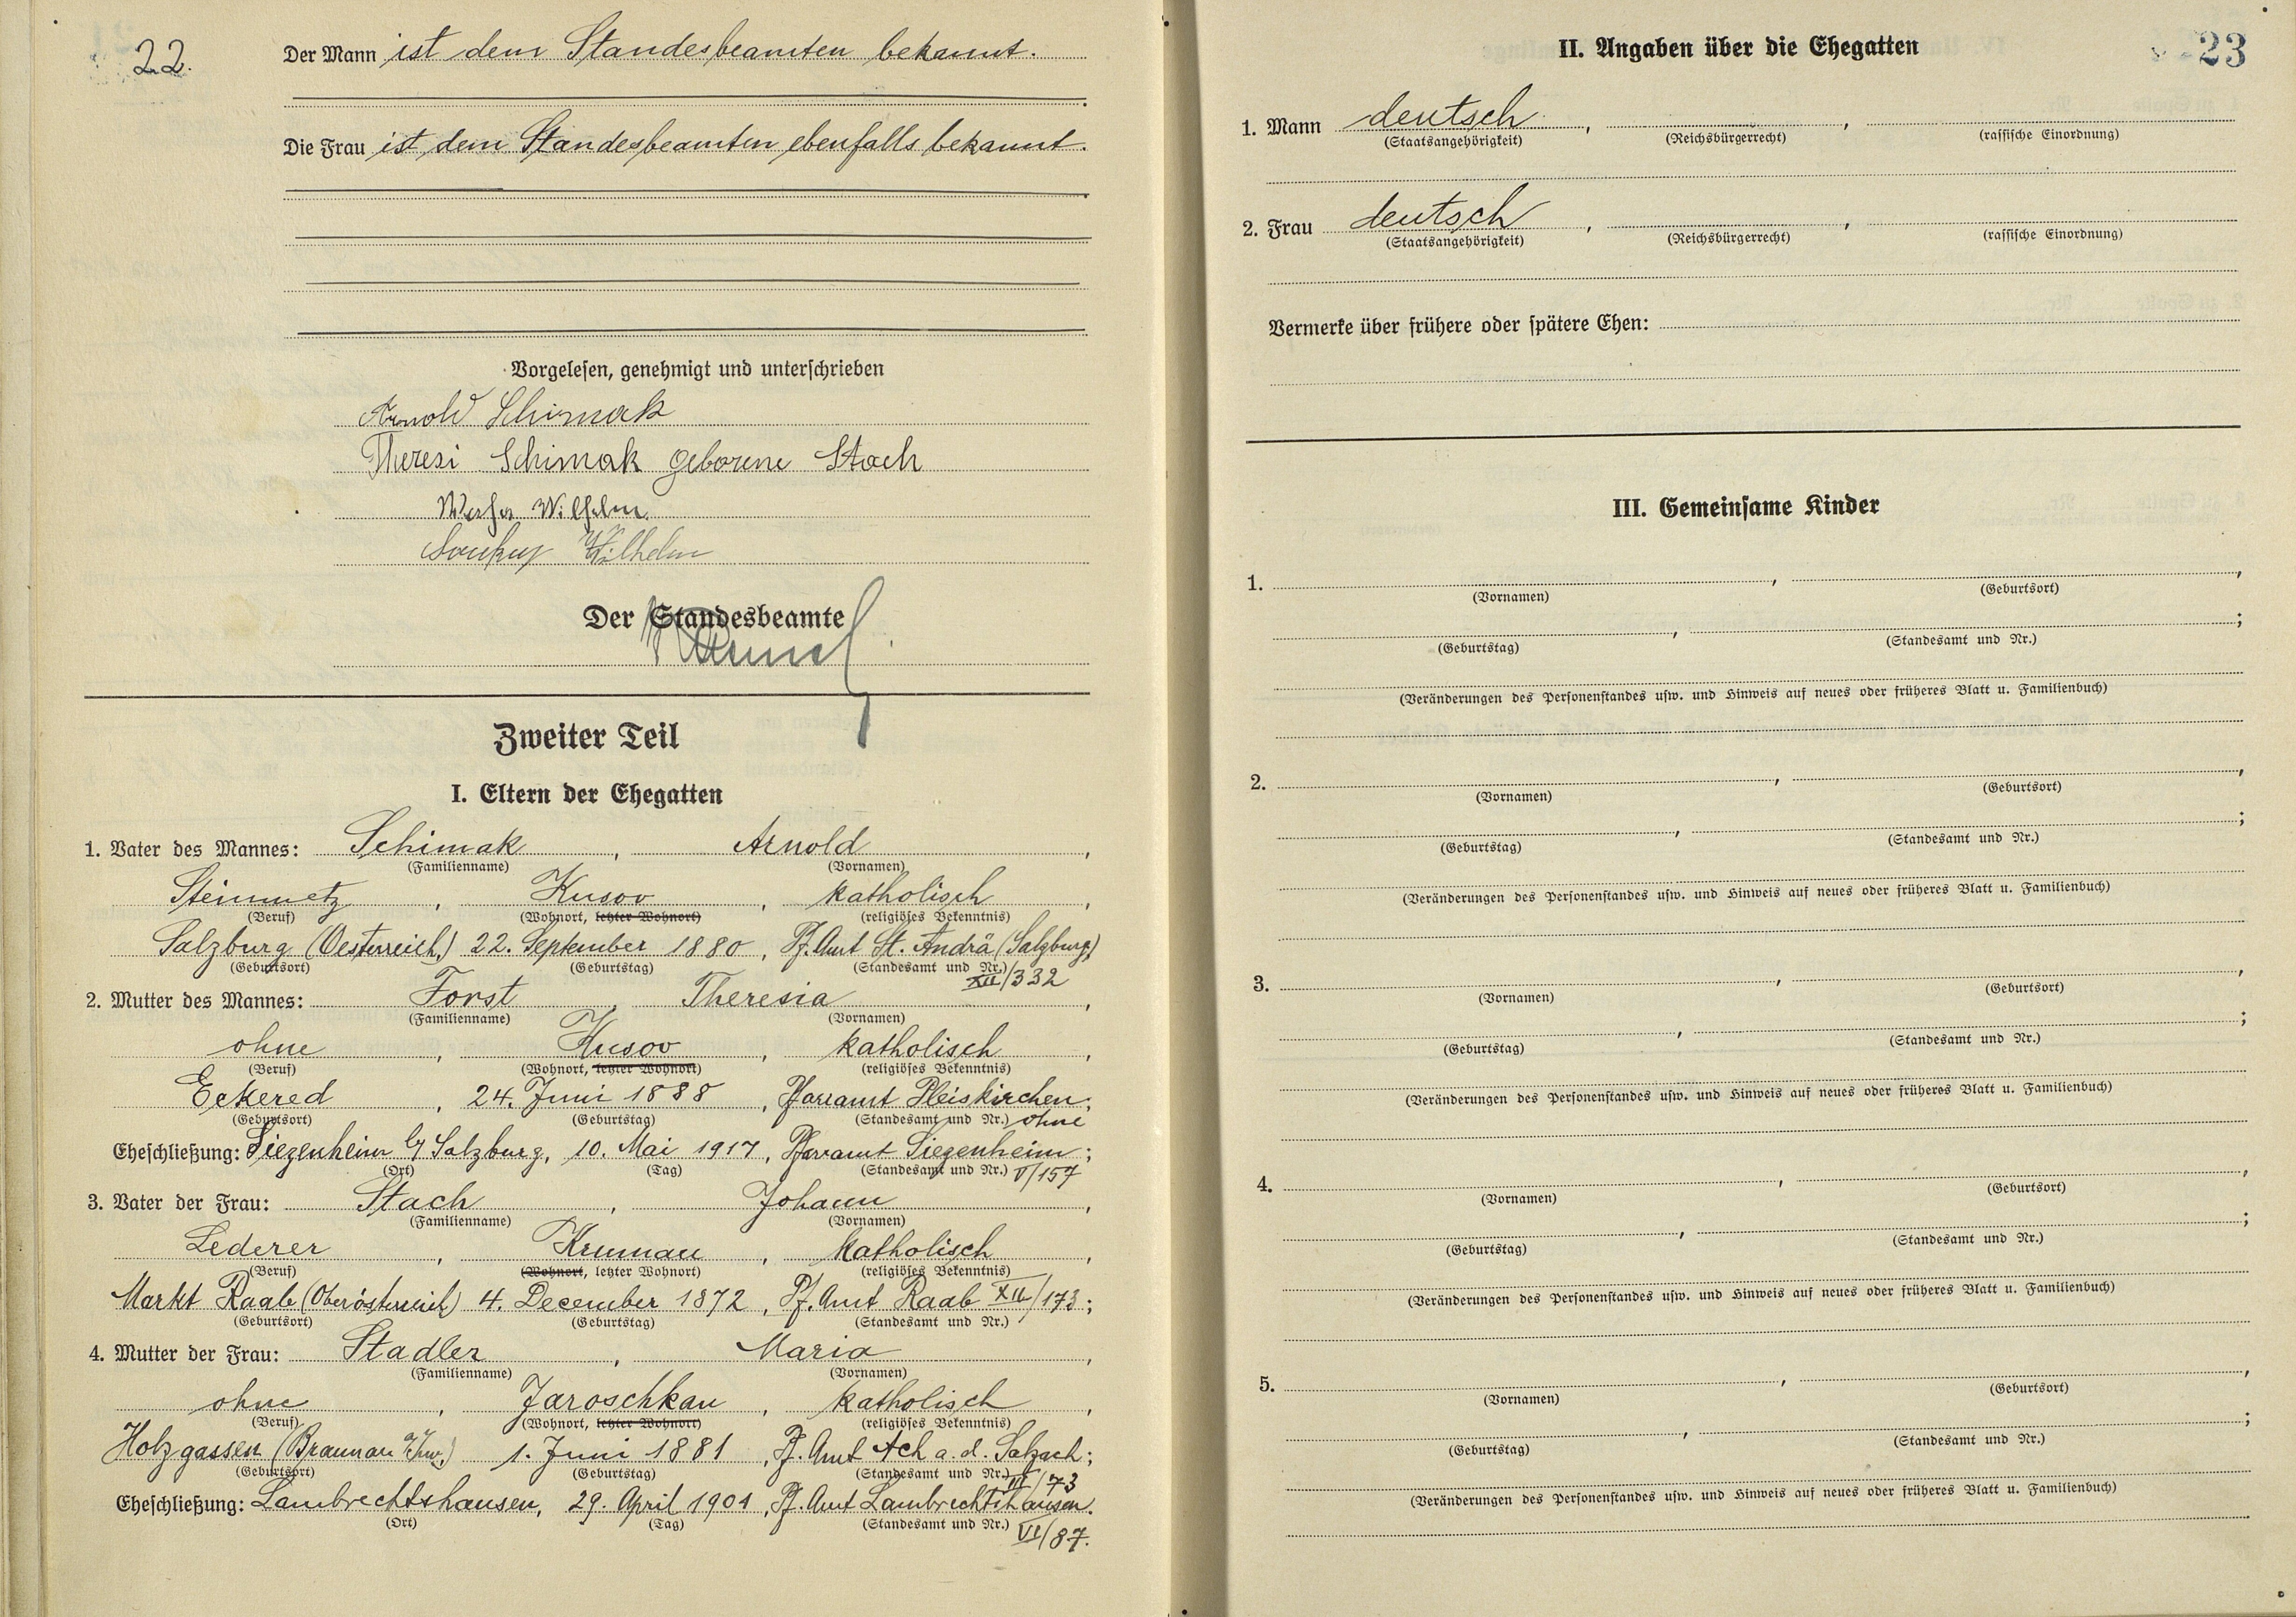 22.
Der Mann ist dem Standesbeamten bekannt.
Die Frau ist dem Standesbeamten ebenfalls bekannt.
Vorgelesen, genehmigt und unterschrieben
Arnold Schimak
Theresi Schimak geborene Stach
Wilhelm
Wilhelm
Der Standesbeamte
Zweiter Teil
I. Eltern der Ehegatten
1. Vater des Mannes: Schimak, Arnold,
(Familienname) (Vornamen)
Steinmetz, Husov, katholisch,
(Beruf) (Wohnort, letzter Wohnort) (religiöses Bekenntnis)
Salzburg (Oesterreich,) 22. September 1880, Pf. Amt St. Andrä (Salzburg)
(Geburtsort) (Geburtstag) (Standesamt und Nr.)
XII/332
2. Mutter des Mannes: Forst, Theresia,
(Familienname) (Vornamen)
ohne, Husov, katholisch,
(Beruf) (Wohnort, letzter Wohnort) (religiöses Bekenntnis)
Eckered, 24. Juni 1888, Pfarramt Pleiskirchen;
(Geburtsort) (Geburtstag) (Standesamt und Nr.) ohne
Eheschließung: Siezenheim b/ Salzburg, 10. Mai 1917, Pfarramt Siezenheim;
(Ort) (Tag) (Standesamt und Nr.) V/157
3. Vater der Frau: Stach, Johann,
(Familienname) (Vornamen)
Lederer, Krumau, katholisch,
(Beruf) (Wohnort, letzter Wohnort) (religiöses Bekenntnis)
Markt Raab (Oberösterreich) 4. December 1872, Pf. Amt Raab XII/173;
(Geburtsort) (Geburtstag) (Standesamt und Nr.)
4. Mutter der Frau: Stadler, Maria,
(Familienname) (Vornamen)
ohne, Jaroschkau, katholisch,
(Beruf) (Wohnort, letzter Wohnort) (religiöses Bekenntnis)
Holzgassen (Braunau a/Inn.) 1. Juni 1881, Pf. Amt Ach a. d. Salzach;
(Geburtsort) (Geburtstag) (Standesamt und Nr.) III/73
Eheschließung: Lambrechtshausen, 29. April 1901, Pf. Amt Lambrechtshausen.
(Ort) (Tag) (Standesamt und Nr.) VI/87.
23
II. Angaben über die Ehegatten
1. Mann deutsch, ,
(Staatsangehörigkeit) (Reichsbürgerrecht) (rassische Einordnung)
2. Frau deutsch, ,
(Staatsangehörigkeit) (Reichsbürgerrecht) (rassische Einordnung)
Vermerke über frühere oder spätere Ehen:
III. Gemeinsame Kinder
1. , ,
(Vornamen) (Geburtsort)
, ;
(Geburtstag) (Standesamt und Nr.)
(Veränderungen des Personenstandes usw. und Hinweis auf neues oder früheres Blatt u. Familienbuch)
2. , ,
(Vornamen) (Geburtsort)
, ;
(Geburtstag) (Standesamt und Nr.)
(Veränderungen des Personenstandes usw. und Hinweis auf neues oder früheres Blatt u. Familienbuch)
3. , ,
(Vornamen) (Geburtsort)
, ;
(Geburtstag) (Standesamt und Nr.)
(Veränderungen des Personenstandes usw. und Hinweis auf neues oder früheres Blatt u. Familienbuch)
4. , ,
(Vornamen) (Geburtsort)
, ;
(Geburtstag) (Standesamt und Nr.)
(Veränderungen des Personenstandes usw. und Hinweis auf neues oder früheres Blatt u. Familienbuch)
5. , ,
(Vornamen) (Geburtsort)
, ;
(Geburtstag) (Standesamt und Nr.)
(Veränderungen des Personenstandes usw. und Hinweis auf neues oder früheres Blatt u. Familienbuch)